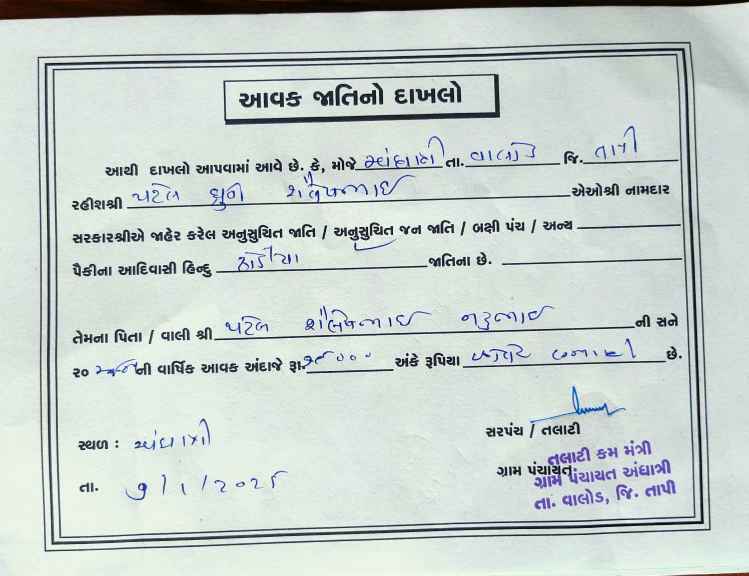 આવક જાતિનો દાખલો
આથી દાખલો આપવામાં આવે છે. કે, મોજે અંધાત્રી તા. વાલોડ જિ. તાપી
રહીશશ્રી પટેલ ધ્રુવી શૈલેષભાઈ એઓશ્રી નામદાર
સરકારશ્રીએ જાહેર કરેલ અનુસુચિત જાતિ / અનુસુચિત જન જાતિ / બક્ષી પંચ / અન્ય
પૈકીના આદિવાસી હિન્દુ ઢોડીયા જાતિના છે.
તેમના પિતા / વાલી શ્રી પટેલ શૈલેષભાઈ નટુભાઈ ની સને
૨૦ ની વાર્ષિક આવક અંદાજે રૂા. અંકે રૂપિયા છે.
સ્થળ : અંધાત્રી
સરપંચ / તલાટી
ગ્રામ પંચાયત
તલાટી કમ મંત્રી
ગ્રામ પંચાયત અંધાત્રી
તા. વાલોડ, જિ. તાપી
તા. ૭/૧/૨૦૨૫